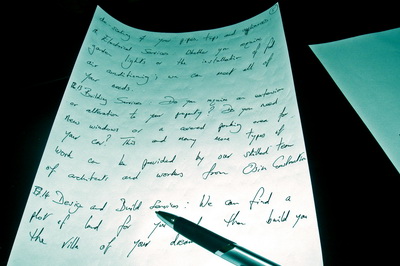 re-sealing of your pipes, taps and appliances
a Electrical Services Whether you require
garden lights or the installation of full
air conditioning, we can meet all of
your needs
Building Services: Do you require an extension
or alteration to your property? Do you need
new windows or a covered parking area for
your car? This and many more types of
work can be provided by our skilled team
of architects and workers from Construction
B.14 Design and Build Services: We can find a
plot of land for you and then build you
the villa of your dreams